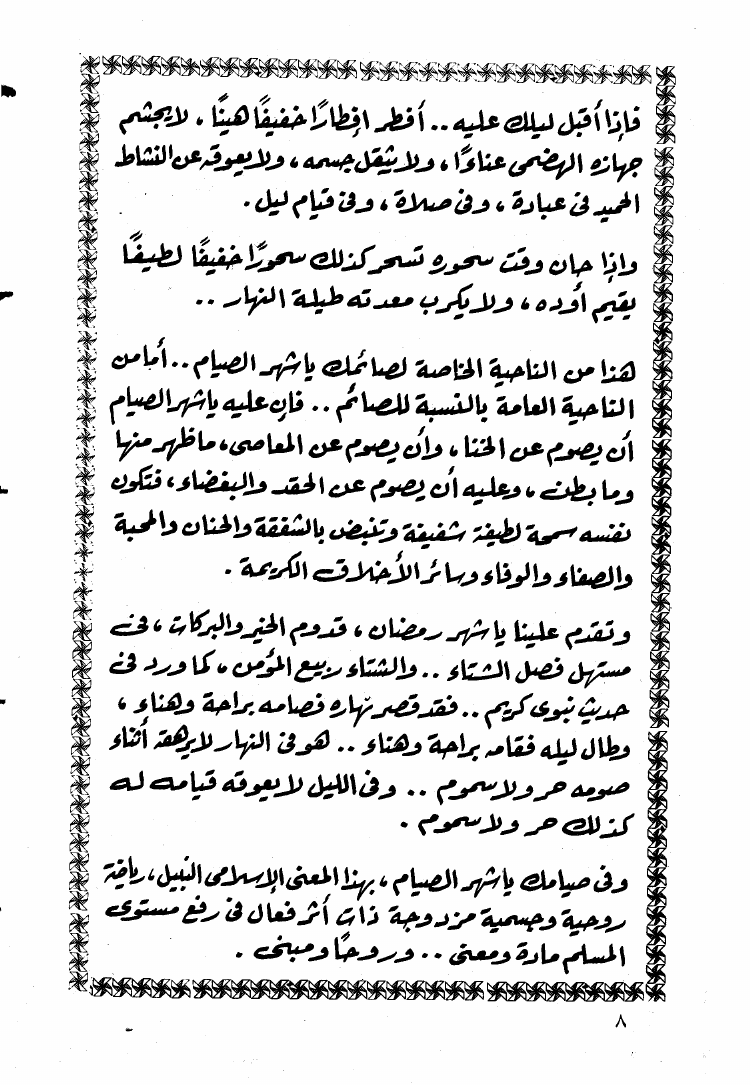 فإذا أقبل ليلك عليه .. أفطر افطارًا خفيفًا هينًا ، لا يجشم
جهازه الهضمى عناءًا ، ولا يثقل جسمه ، ولا يعوقه عن النشاط
الحميد فى عبادة ، وفى صلاة ، وفى قيام ليل .
وإذا حان وقت سحوره تسحر كذلك سحورًا خفيفًا لطيفًا
يقيم أوده ، ولا يكرب معدته طيلة النهار ..
هذا من الناحية الخاصة لصائمك ياشهر الصيام .. أما من
الناحية العامة بالنسبة للصائم .. فإن عليه ياشهر الصيام
أن يصوم عن الخنا ، وأن يصوم عن المعاصى ، ما ظهر منها
وما بطن ، وعليه أن يصوم عن الحقد والبغضاء ، فتكون
نفسه سمحة لطيفة شفيفة وتنبض بالشفقة والحنان والمحبة
والصفاء والوفاء وسائر الأخلاق الكريمة .
وتقدم علينا ياشهر رمضان ، قدوم الخير والبركات ، فى
مستهل فصل الشتاء .. والشتاء ربيع المؤمن ، كما ورد فى
حديث نبوى كريم .. فقد قصر نهاره فصامه براحة وهناء ،
وطال ليله فقامه براحة وهناء .. هو فى النهار لا يرهقه أثناء
صومه حر ولا سموم .. وفى الليل لا يعوقه قيامه له
كذلك حر ولا سموم .
وفى صيامك ياشهر الصيام ، بهذا المعنى الإسلامى النبيل ، رياضة
روحية وجسمية مزدوجة ذات أثر فعال فى رفع مستوى
المسلم مادة ومعنى .. وروحًا ومبنى .
٨